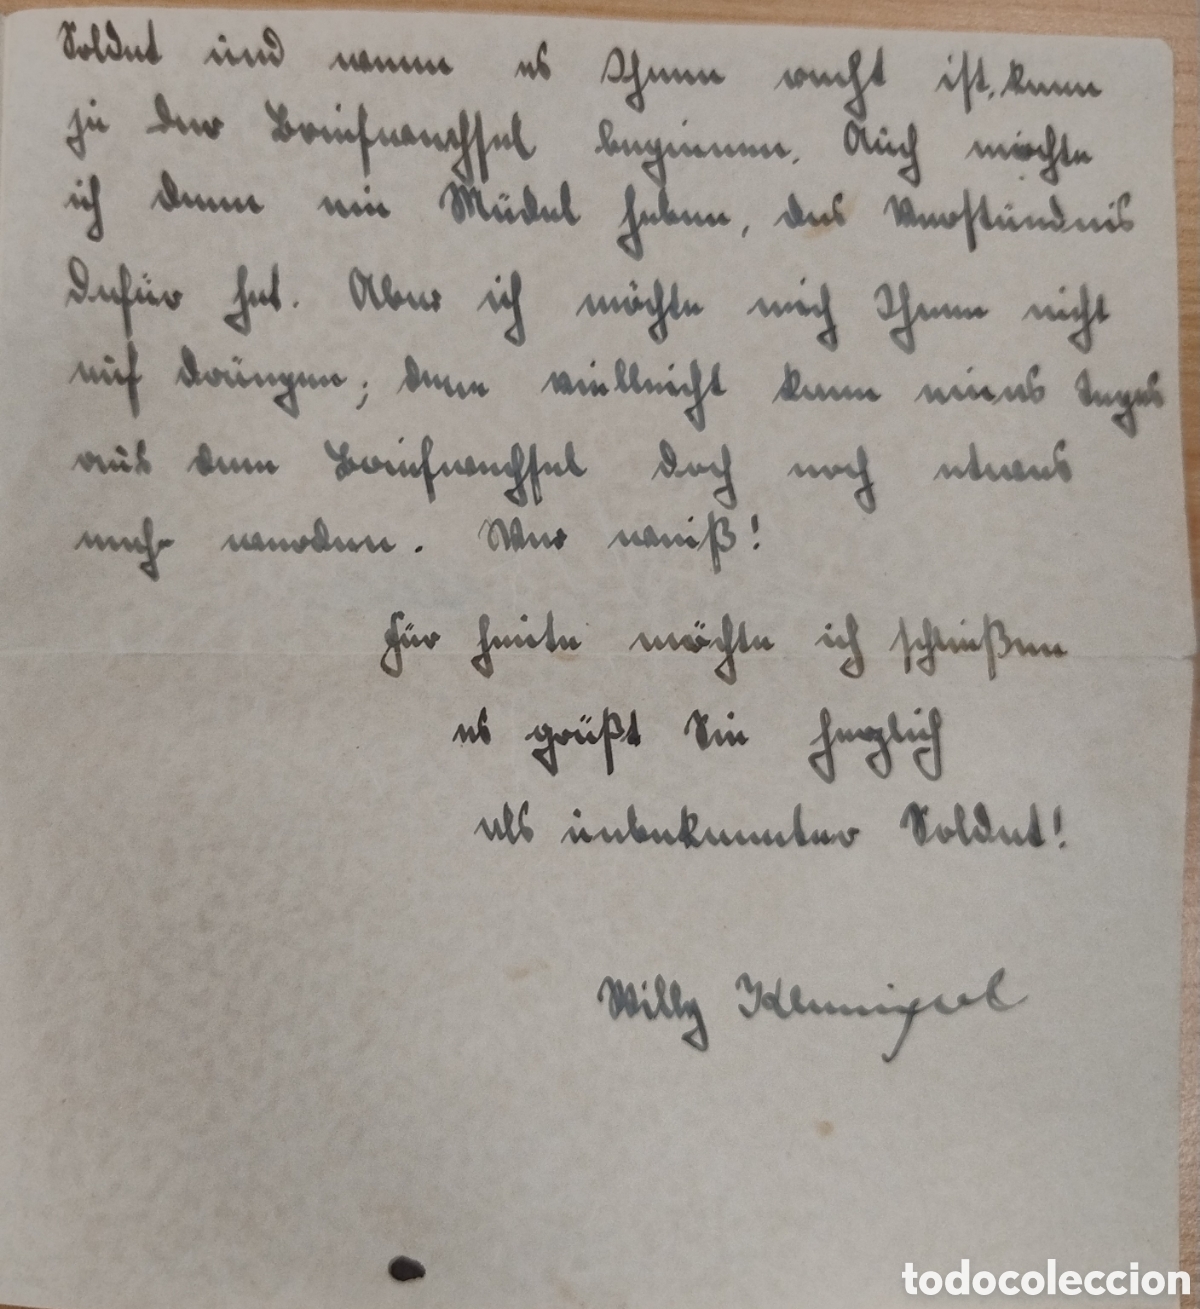 Soldat und wenn es Ihnen recht ist, kann
ja der Briefwechsel beginnen. Auch möchte
ich dann ein Mädel haben, das Verständnis
dafür hat. Aber ich möchte mich Ihnen nicht
auf drängen; denn vielleicht kann eines Tages
aus dem Briefwechsel doch noch etwas
mehr werden. Wer weiß!
Für heute möchte ich schließen
es grüßt Sie herzlich
als unbekannter Soldat!
Willy
todocoleccion